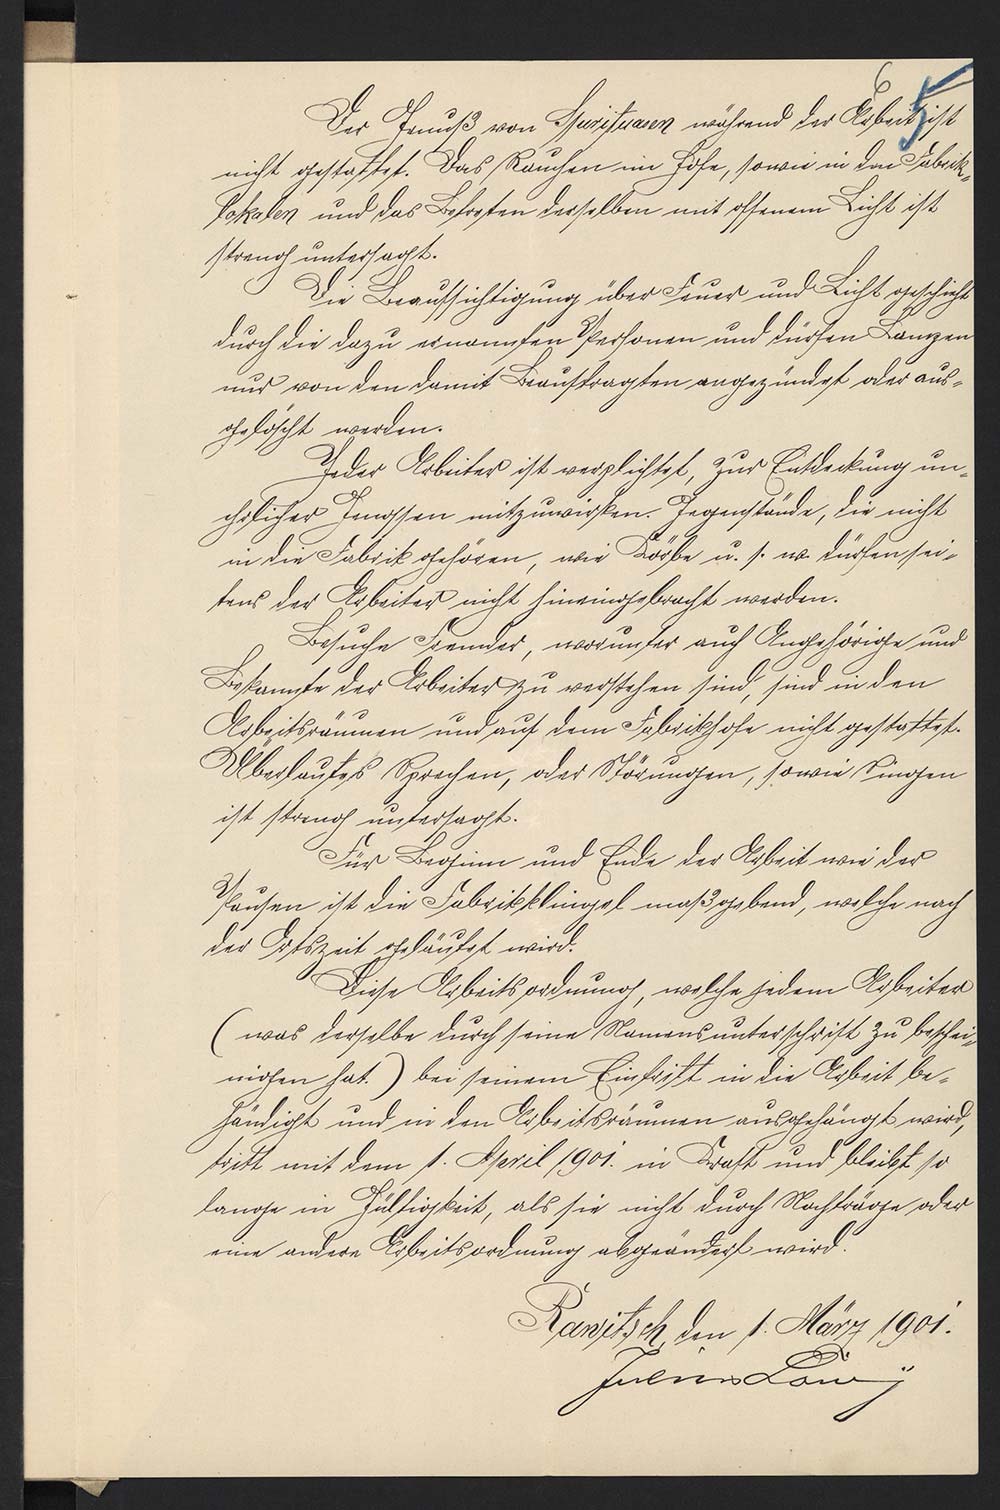 6
5
Der Genuß von Spirituosen während der Arbeit ist
nicht gestattet. Das Rauchen im Hofe, sowie in den Fabrik-
lokalen und das Betreten derselben mit offenem Licht ist
streng untersagt.
Die Beaufsichtigung über Feuer und Licht geschieht
durch die dazu ernannten Personen und dürfen Lampen
nur von den damit Beauftragten angezündet oder aus-
gelöscht werden.
Jeder Arbeiter ist verplichtet, zur Entdeckung un-
ehrlicher Genossen mitzuwirken. Gegenstände, die nicht
in die Fabrik gehören, wie Körbe u. s. w. dürfen sei-
tens der Arbeiter nicht hineingebracht werden.
Besuche Fremder, worunter auch Angehörige und
Bekannte der Arbeiter zu verstehen sind, sind in den
Arbeitsräumen und auf dem Fabrikhofe nicht gestattet.
Überlautes Sprechen, oder Störungen, sowie Singen
ist streng untersagt.
Für Beginn und Ende der Arbeit wie der
Pausen ist die Fabrikklingel maßgebend, welche nach
der Ortszeit geläutet wird.
Diese Arbeitsordnung, welche jedem Arbeiter
(was derselbe durch seine Namensunterschrift zu beschei-
nigen hat.) bei seinem Eintritt in die Arbeit be-
händigt und in den Arbeitsräumen ausgehängt wird,
tritt mit dem 1. April 1901. in Kraft und bleibt so
lange in Gültigkeit, als sie nicht durch Nachträge oder
eine andere Arbeitsordnung abgeändert wird.
Rawitsch, den 1. März 1901.
Julius Löwy